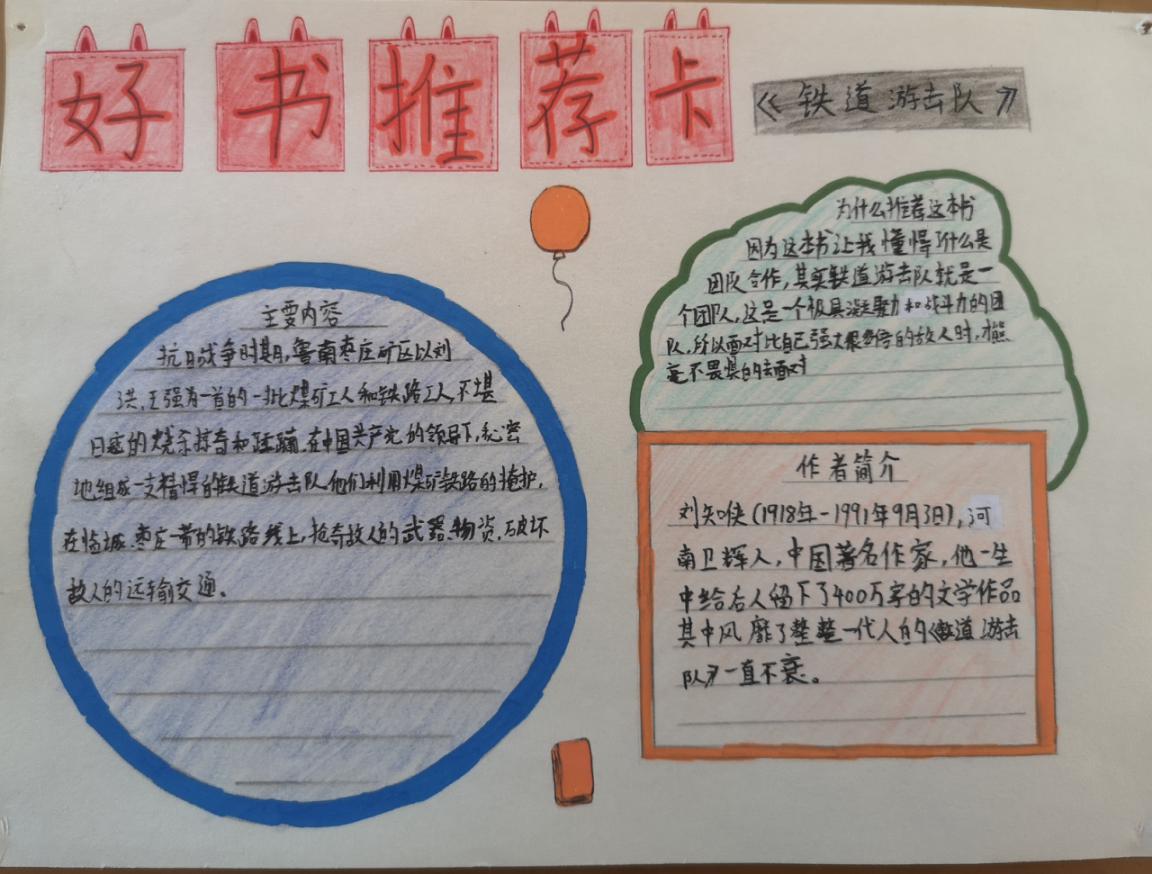 好书推荐卡
《铁道游击队》
主要内容
抗日战争时期,鲁南枣庄矿区以刘
洪、王强为首的一批煤矿工人和铁路工人,不堪
日寇的烧杀掠夺和蹂躏,在中国共产党的领导下,秘密
地组成一支精悍的铁道游击队,他们利用煤矿铁路的掩护,
在临城、枣庄一带的铁路线上,抢夺敌人的武器、物资,破坏
敌人的运输交通。
为什么推荐这本书
因为这本书让我懂得了什么是
团队合作,其实铁道游击队就是一
个团队,这是一个极具凝聚力和战斗力的团
队,所以面对比自己强大很多倍的敌人时,才能
毫不畏惧的去面对
作者简介
刘知侠(1918年-1991年9月3日),河
南卫辉人,中国著名作家,他一生
中给后人留下了400万字的文学作品
其中风靡了整整一代人的《铁道游击
队》一直不衰。